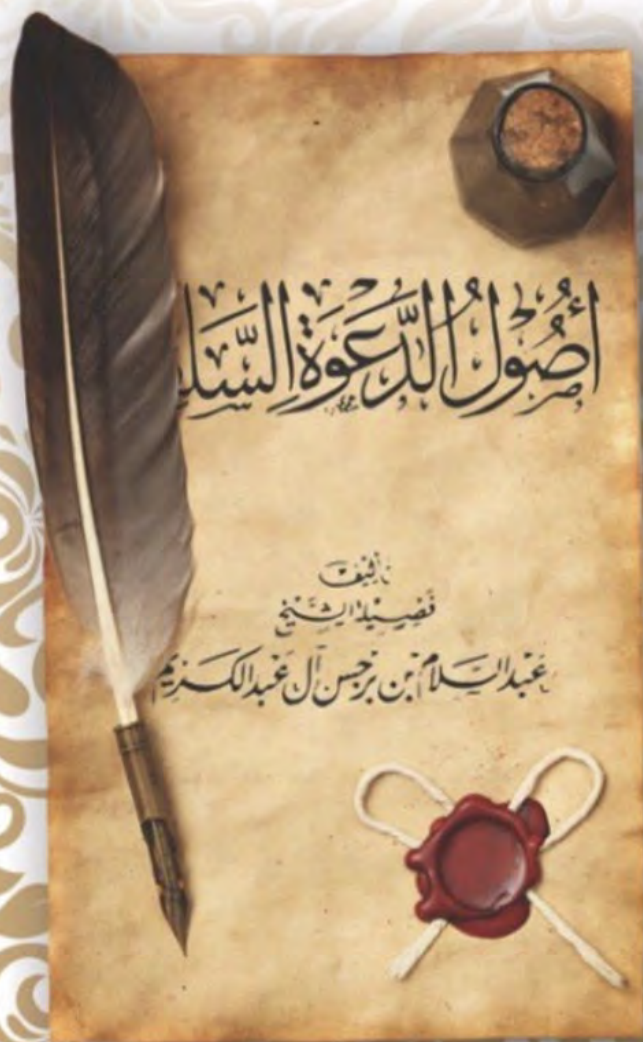 أُصُولُ الدَّعْوَةِ السَّلَ
تأليف
فَضِيلَة الشَّيْخ
عَبْد السَّلام بن بَرْجس آل عَبْد الكَريم